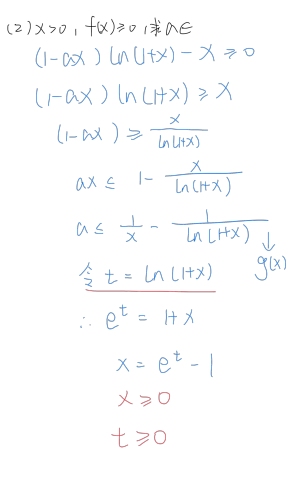 (2) x>0, f(x)≥0, 求a∈
(1-ax) ln(1+x) - x ≥ 0
(1-ax) ln(1+x) ≥ x
(1-ax) ≥ x/ln(1+x)
ax ≤ 1 - x/ln(1+x)
a ≤ 1/x - 1/ln(1+x)
↓
g(x)
令 t = ln(1+x)
∴ e^t = 1+x
x = e^t - 1
x ≥ 0
t ≥ 0